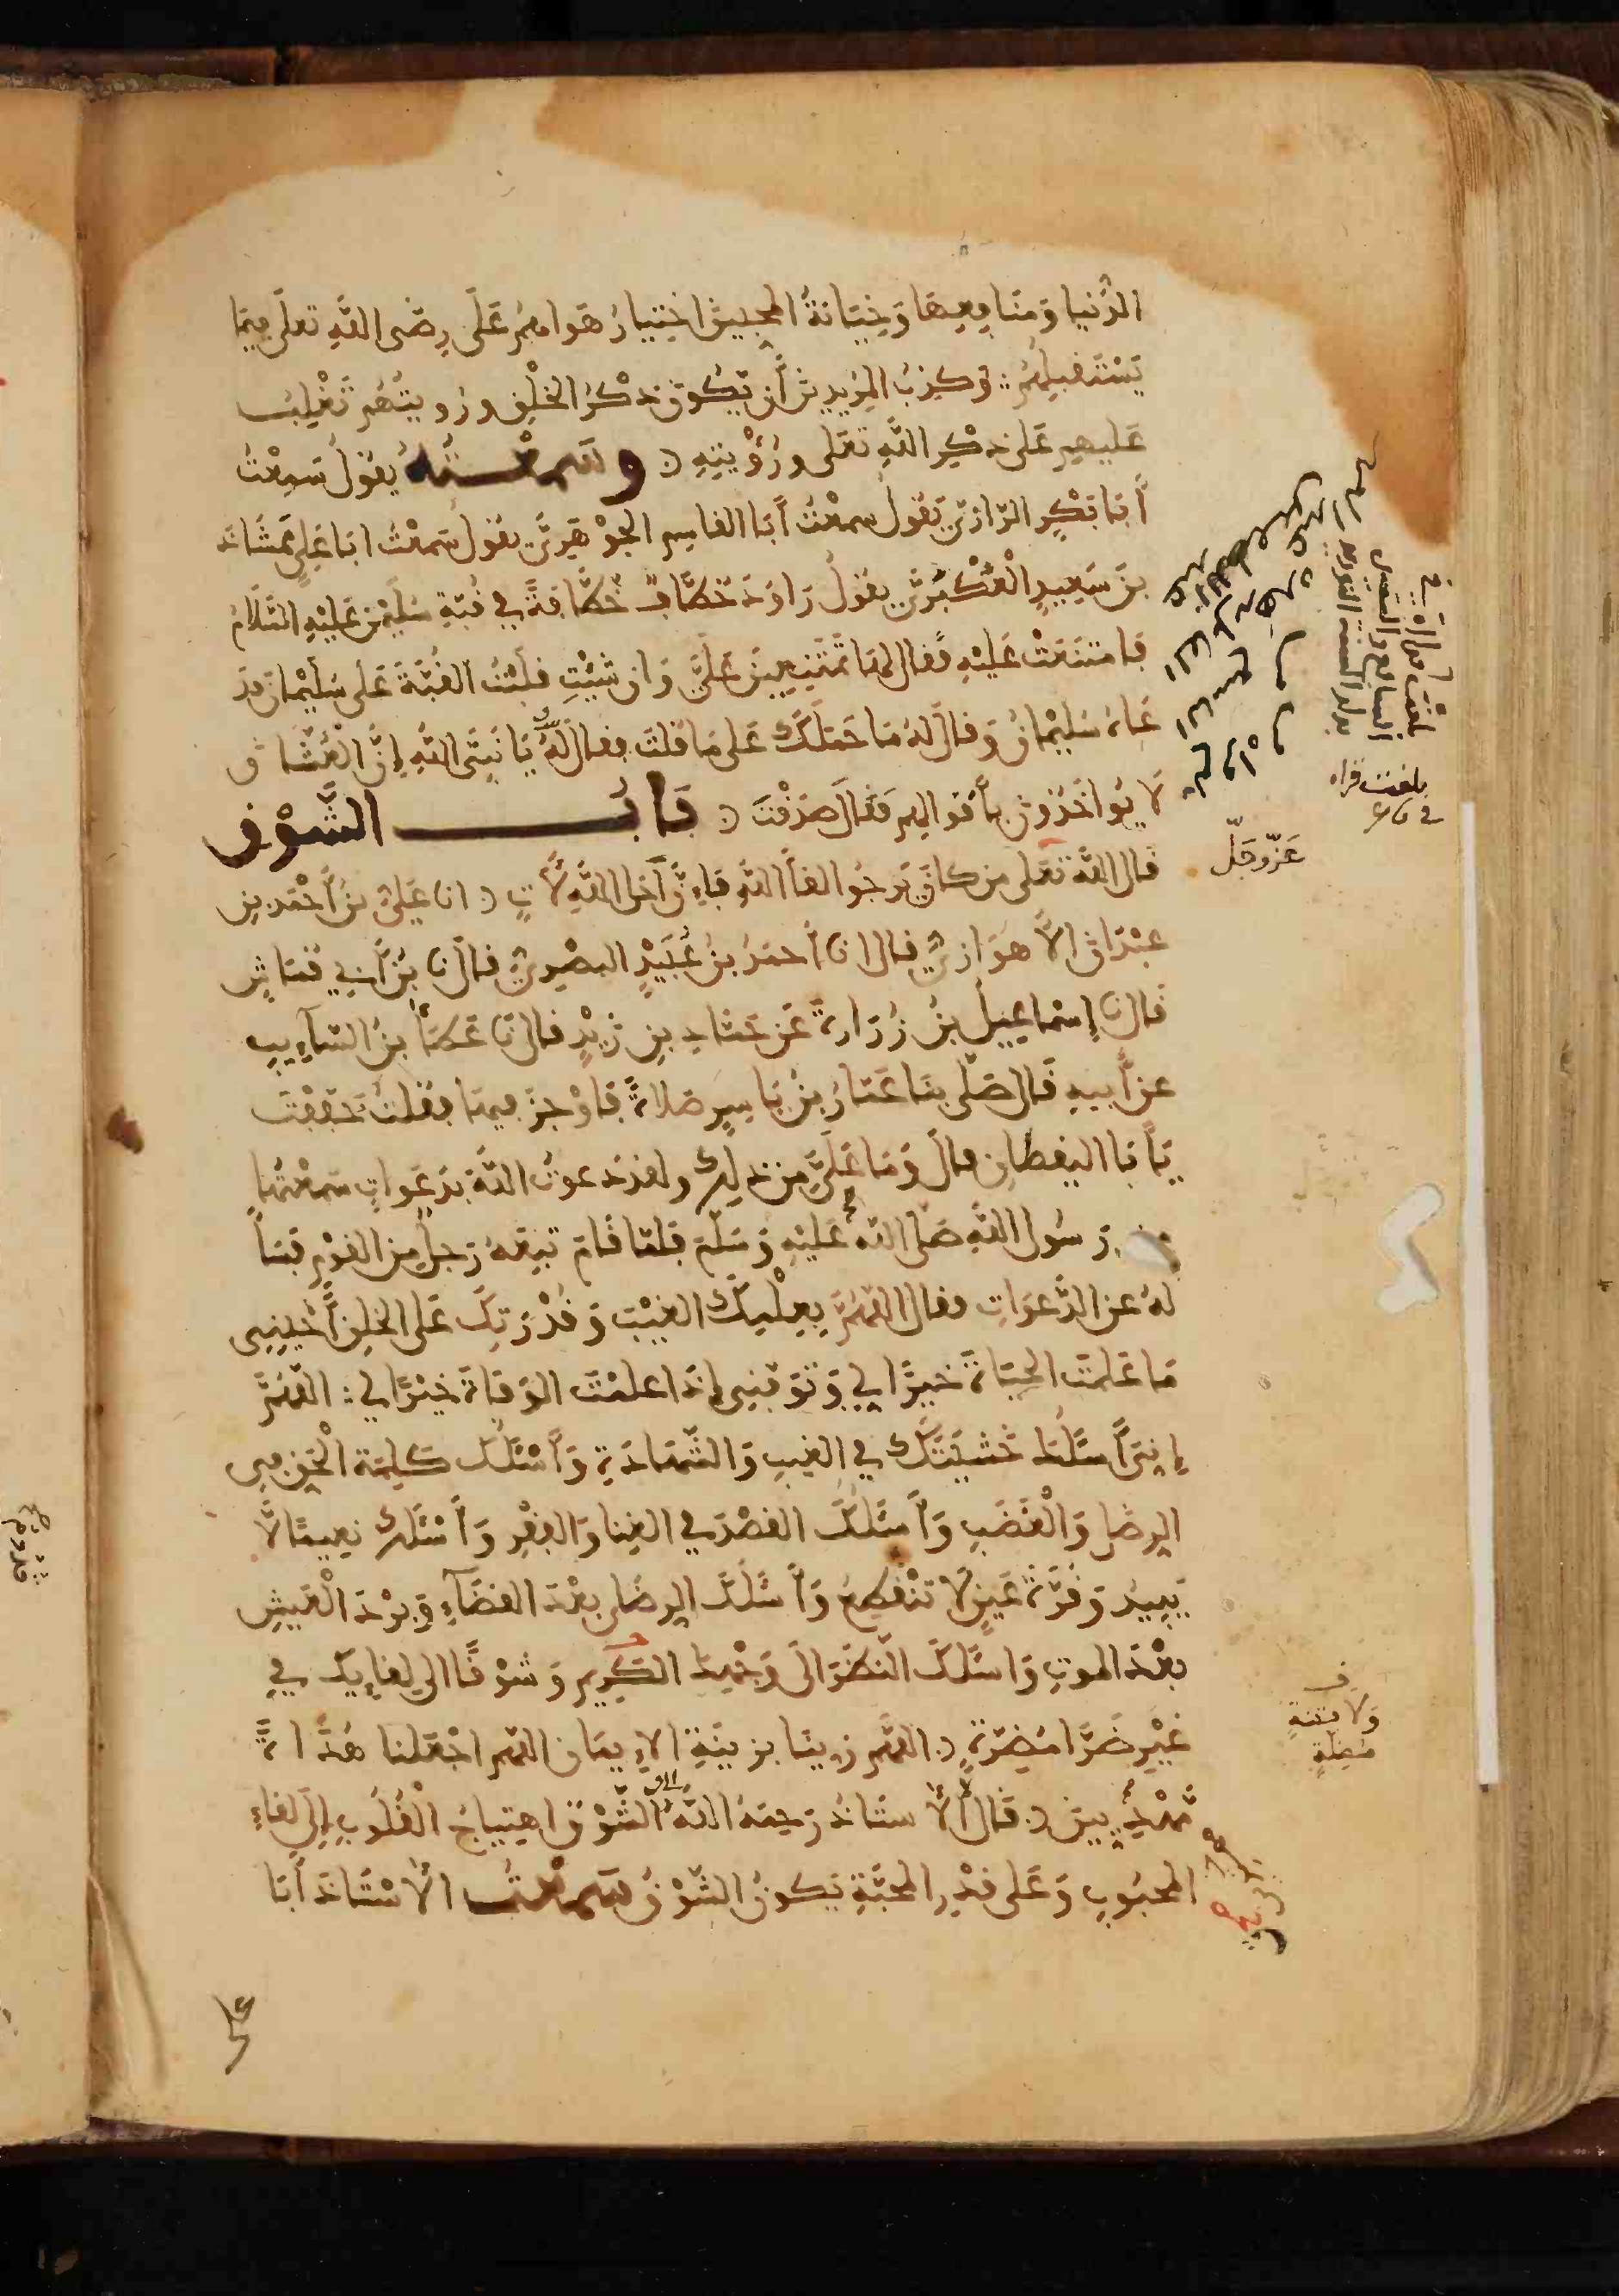 الدُّنيا وَمَنَافِعِهَا وَخِيَانَةُ المحبين اخْتِيارُ هَوَاهُمْ عَلَى رِضَى اللَّهِ تعلى فيما
يَسْتَقْبِلُهُمْ وَكذِبُ المُرِيدِينَ أَن يَكُونَ ذِكْرُ الخَلْقِ ورُويَتُهُم تَغْلِبُ
عَليهِم عَلى ذِكْرِ اللَّهِ تَعَلى ورُؤْيَتِهِ وسَمِعْتُهُ يَقُولُ سَمِعْتُ
أَبَا بَكْرٍ الرَّازِيَّ يَقُولُ سمعْتُ أَبَا القاسِمِ الجَوْهَرِيَّ يقُولُ سَمعْتُ ابَا عَلِيٍّ مَمْشَاذَ
بنَ سَعِيدٍ الْعُكْبَرِيَّ يقُولُ رَاوَدَ خَطَّافٌ خُطَّافَةً في قُبَّةِ سُلَيْمٰنَ عَلَيْهِ السَّلَامُ
فَامتنَعَتْ عَلَيْهِ فَقال لهَا تَمْتَنِعِينَ عَلَيَّ وَان شِئْتِ قلبْتُ القُبَّةَ عَلى سُلَيْمان فدَ
عَاهُ سُلَيْمانُ وَقالَ لهُ مَا حَمَلَكَ عَلى مَا قُلتَ فقال لَهُ يَا نَبِيَّ اللَّهِ إِنَّ الْعُشَّاقَ
لَا يُوَاخَذُونَ بأَقْوَالِهِم فَقَالَ صَدَقْتَ بَابُ الشَّوْقِ
قال اللَّهُ تعَلى مَن كانَ يَرْجُوا لقاَ اللَّهِ فَإِنَّ أَجَلَ اللَّهِ لَأَتٍ انا عَلِيُّ بنُ أَحْمَد بنِ
عبْدَان الأَهْوَازِيُّ قال انا أَحمَدُ بنُ عُبَيْدٍ البصْرِيُّ قالَ نا بْنُ أَبِي قمَاشٍ
قال نا إِسْمَاعِيلُ بنُ زُرَارةَ عَن حَمَّادِ بنِ زَيْدٍ قال نَا عَطَاءُ بنُ السَّايِبِ
عن أَبِيهِ قَال صَلَّى بنَا عَمَّارُ بنُ يَاسِرٍ صَلاةً فَأَوْجَزَ فيهَا فقُلتُ خَفَّفْتَ
يَا أَبَا اليقظان قالَ وَمَا عَلَيَّ مِن ذَلِكَ ولقدْ دَعوتُ اللَّهَ بدَعَواتٍ سَمعْتُهَا
مِن رَسُول اللَّهِ صَلَّى اللَّه عَلَيْهِ وَسَلَّمَ فلمَّا قَامَ تبِعَهُ رَجلٌ مِنَ القَوْمِ فسَأَ
لهُ عن الدَّعَوَاتِ فقال اللَّهُمَّ بِعِلْمِكَ الغَيْبَ وَقُدْرَتِكَ عَلى الخلقِ أَحْيِنِي
مَا عَلِمْتَ الحيَاةَ خَيرًا لي وَتَوَفَّنِي إِذَا عَلمْتَ الوَفَاةَ خيْرًا لي اللَّهُمَّ
إِنِّي أَسْئَلُكَ خَشْيَتَكَ في الغيبِ وَالشَّهَادَةِ وَأَسْئَلُكَ كَلِمَةَ الْحَقِّ في
الرِضَى وَالْغَضَبِ وَأَسْئَلُكَ القَصْدَ في الغِنا وَالفقْرِ وَأَسْئَلُكَ نَعِيمًا لَّا
يَبِيدُ وَقُرَّةَ عَينٍ لَا تنْقَطِعُ وَأَسْئَلُكَ الرِضَى بعْدَ القضَآءِ وَبرْدَ الْعَيشِ
بعْدَ الموتِ وَاسْئَلُكَ النَّظَرَ الى وَجْهِكَ الكَرِيمِ وَشَوْقًا الى لِقايِكَ في
غَيْرِ ضَرَّا مُضِرَّةٍ اللَّهم زَيِّنَا بزِينَةِ الإِيمَان اللَّهم اجْعَلنا هُدَاةً
مُّهْتَدِينَ قَالَ الأُسْتَاذُ رَحِمَهُ اللَّهُ الشَّوْقُ اهْتِيَاجُ الْقُلُوبِ إِلى لقاءِ
المحبُوبِ وَعَلى قدْرِ المحبَّةِ يَكونُ الشَّوْقُ سَمِعْتُ الأُسْتَاذَ أَبَا
عَزَّ وَجَلَّ
بلغت قراه
وَلا فِتْنةٍ
مُضِلّةٍ